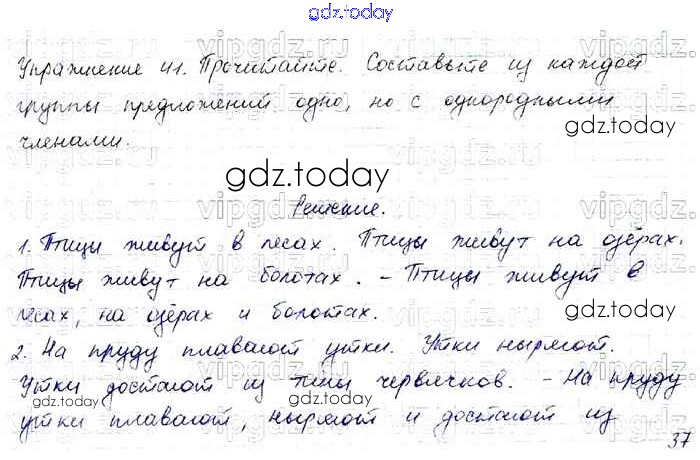 gdz.today
Упражнение 41. Прочитайте. Составьте из каждой
группы предложений одно, но с однородными
членами.
gdz.today
gdz.today
Решение.
1. Птицы живут в лесах. Птицы живут на озёрах.
Птицы живут на болотах. - Птицы живут в
лесах, на озёрах и болотах.
gdz.today
2. На пруду плавают утки. Утки ныряют.
Утки достают из тины червячков. - На пруду
gdz.today
утки плавают, ныряют и достают из
37